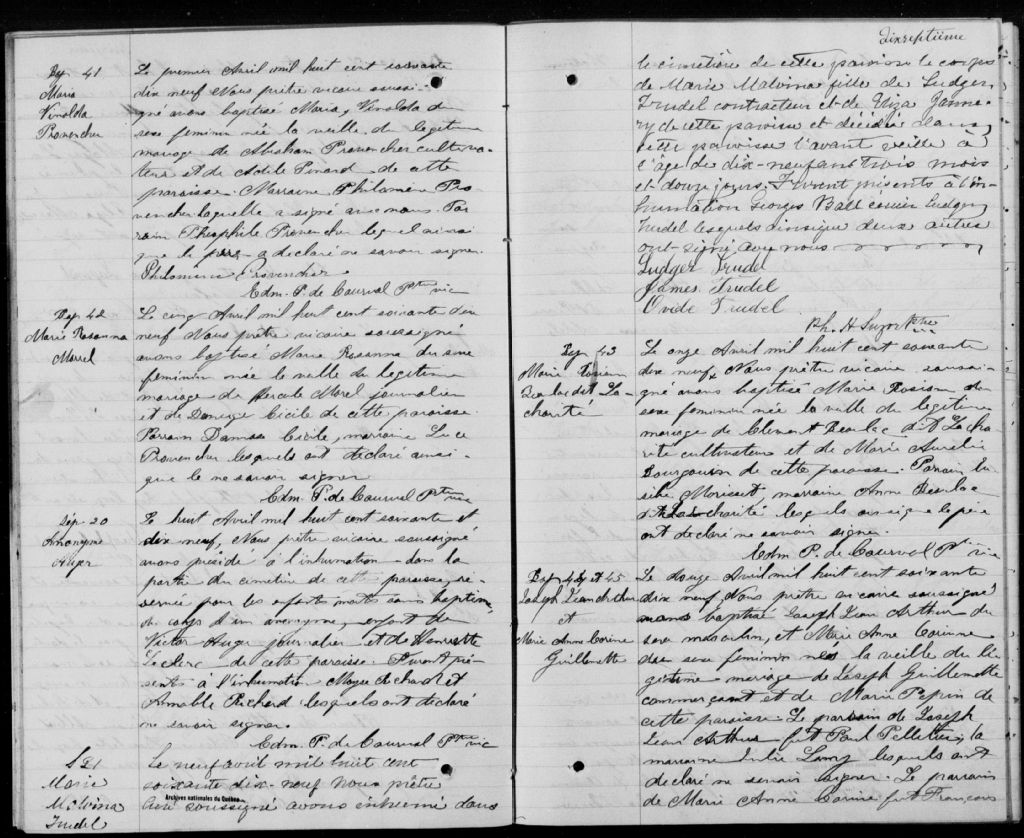 Bap. 41
Marie
Vinolda
Provencher
Le premier Avril mil huit cent soixante
dix neuf Nous prêtre vicaire soussi-
gné avons baptisé Maria, Vinolda du
sexe feminin née la veille du legitime
mariage de Abraham Provencher cultiva-
teur et de Adile Pinard de cette
paroisse. Marraine Philomène Pro
vencher laquelle a signé avec nous. Par
rain Théophile Provencher lequel ainsi
que le père a déclaré ne savoir signer.
Philomène Provencher
Edm. P. de Courval Ptre vic
Bap. 42
Marie Rosanna
Morel
Le cinq Avril mil huit cent soixante dix
neuf Nous prêtre vicaire soussigné
avons baptisé Marie Rosanna du sexe
feminin née la veille du legitime
mariage de Hercule Morel journalier
et de Cécile de cette paroisse.
Parrain Damase Cécile, marraine Luce
Provencher lesquels ont déclaré ainsi-
que le ne savoir signer
Edm. P. de Courval Ptre vic
Sép. 20
Anonyme
Auger
Le huit Avril mil huit cent soixante et
dix neuf, Nous prêtre vicaire soussigné
avons présidé à l'inhumation dans la
partie du cimetière de cette paroisse, ré-
servée pour les enfants morts sans baptême,
du corps d'un anonyme, enfant de
Victor Auger journalier et de Henriette
Leclerc de cette paroisse. Furent pré-
sents à l'inhumation Moyse Richard et
Aimable Richard lesquels ont déclaré
ne savoir signer.
Edm. P. de Courval Ptre vic
S 21
Marie
Malvina
Trudel
Le neuf avril mil huit cent
soixante dix-neuf nous prêtre
Archives nationales du Québec
curé soussigné avons inhumé dans
dixseptième
le cimetière de cette paroisse le corps
de Marie Malvina fille de Ludger
Trudel contracteur et de Eliza
de cette paroisse et décédée dans
cette paroisse l'avant veille à
l'âge de dix-neuf ans trois mois
et douze jours. Furent présents à l'in-
humation Georges Ball Ludger
Trudel lesquels deux autres
ont signé avec nous
Ludger Trudel
James Trudel
Ovide Trudel
Ph. H Suzor Ptre
Bap 43
Marie Rosiam
Beaulac dit La-
charité
Le onze Avril mil huit cent soixante
dix neuf, Nous prêtre vicaire soussi-
gné avons baptisé Marie Rosiam du
sexe feminin née la veille du legitime
mariage de Clement Beaulac dit Lacha-
rité cultivateur et de Marie Aurelie
Bourgouin de cette paroisse. Parrain Eu
sèbe Morisset, marraine Anne Beaulac
dit Lacharité lesquels ainsi que le père
ont déclaré ne savoir signer.
Edm P. de Courval Ptre vic
Bap 44 et 45
Joseph Jean Arthur
et
Marie Anne Corinne
Guillemette
Le douze Avril mil huit cent soixante
dix neuf Nous prêtre vicaire soussigné
avons baptisé Joseph Jean Arthur du
sexe masculin, et Marie Anne Corinne
du sexe feminin nés la veille du lé
gitime mariage de Joseph Guillemette
commerçant et de Marie Pepin de
cette paroisse Le parrain de Joseph
Jean Arthur fut Paul Pelletier, la
marraine Julie Lamy lesquels ont
déclaré ne savoir signer. Le parrain
de Marie Anne Corinne fut François